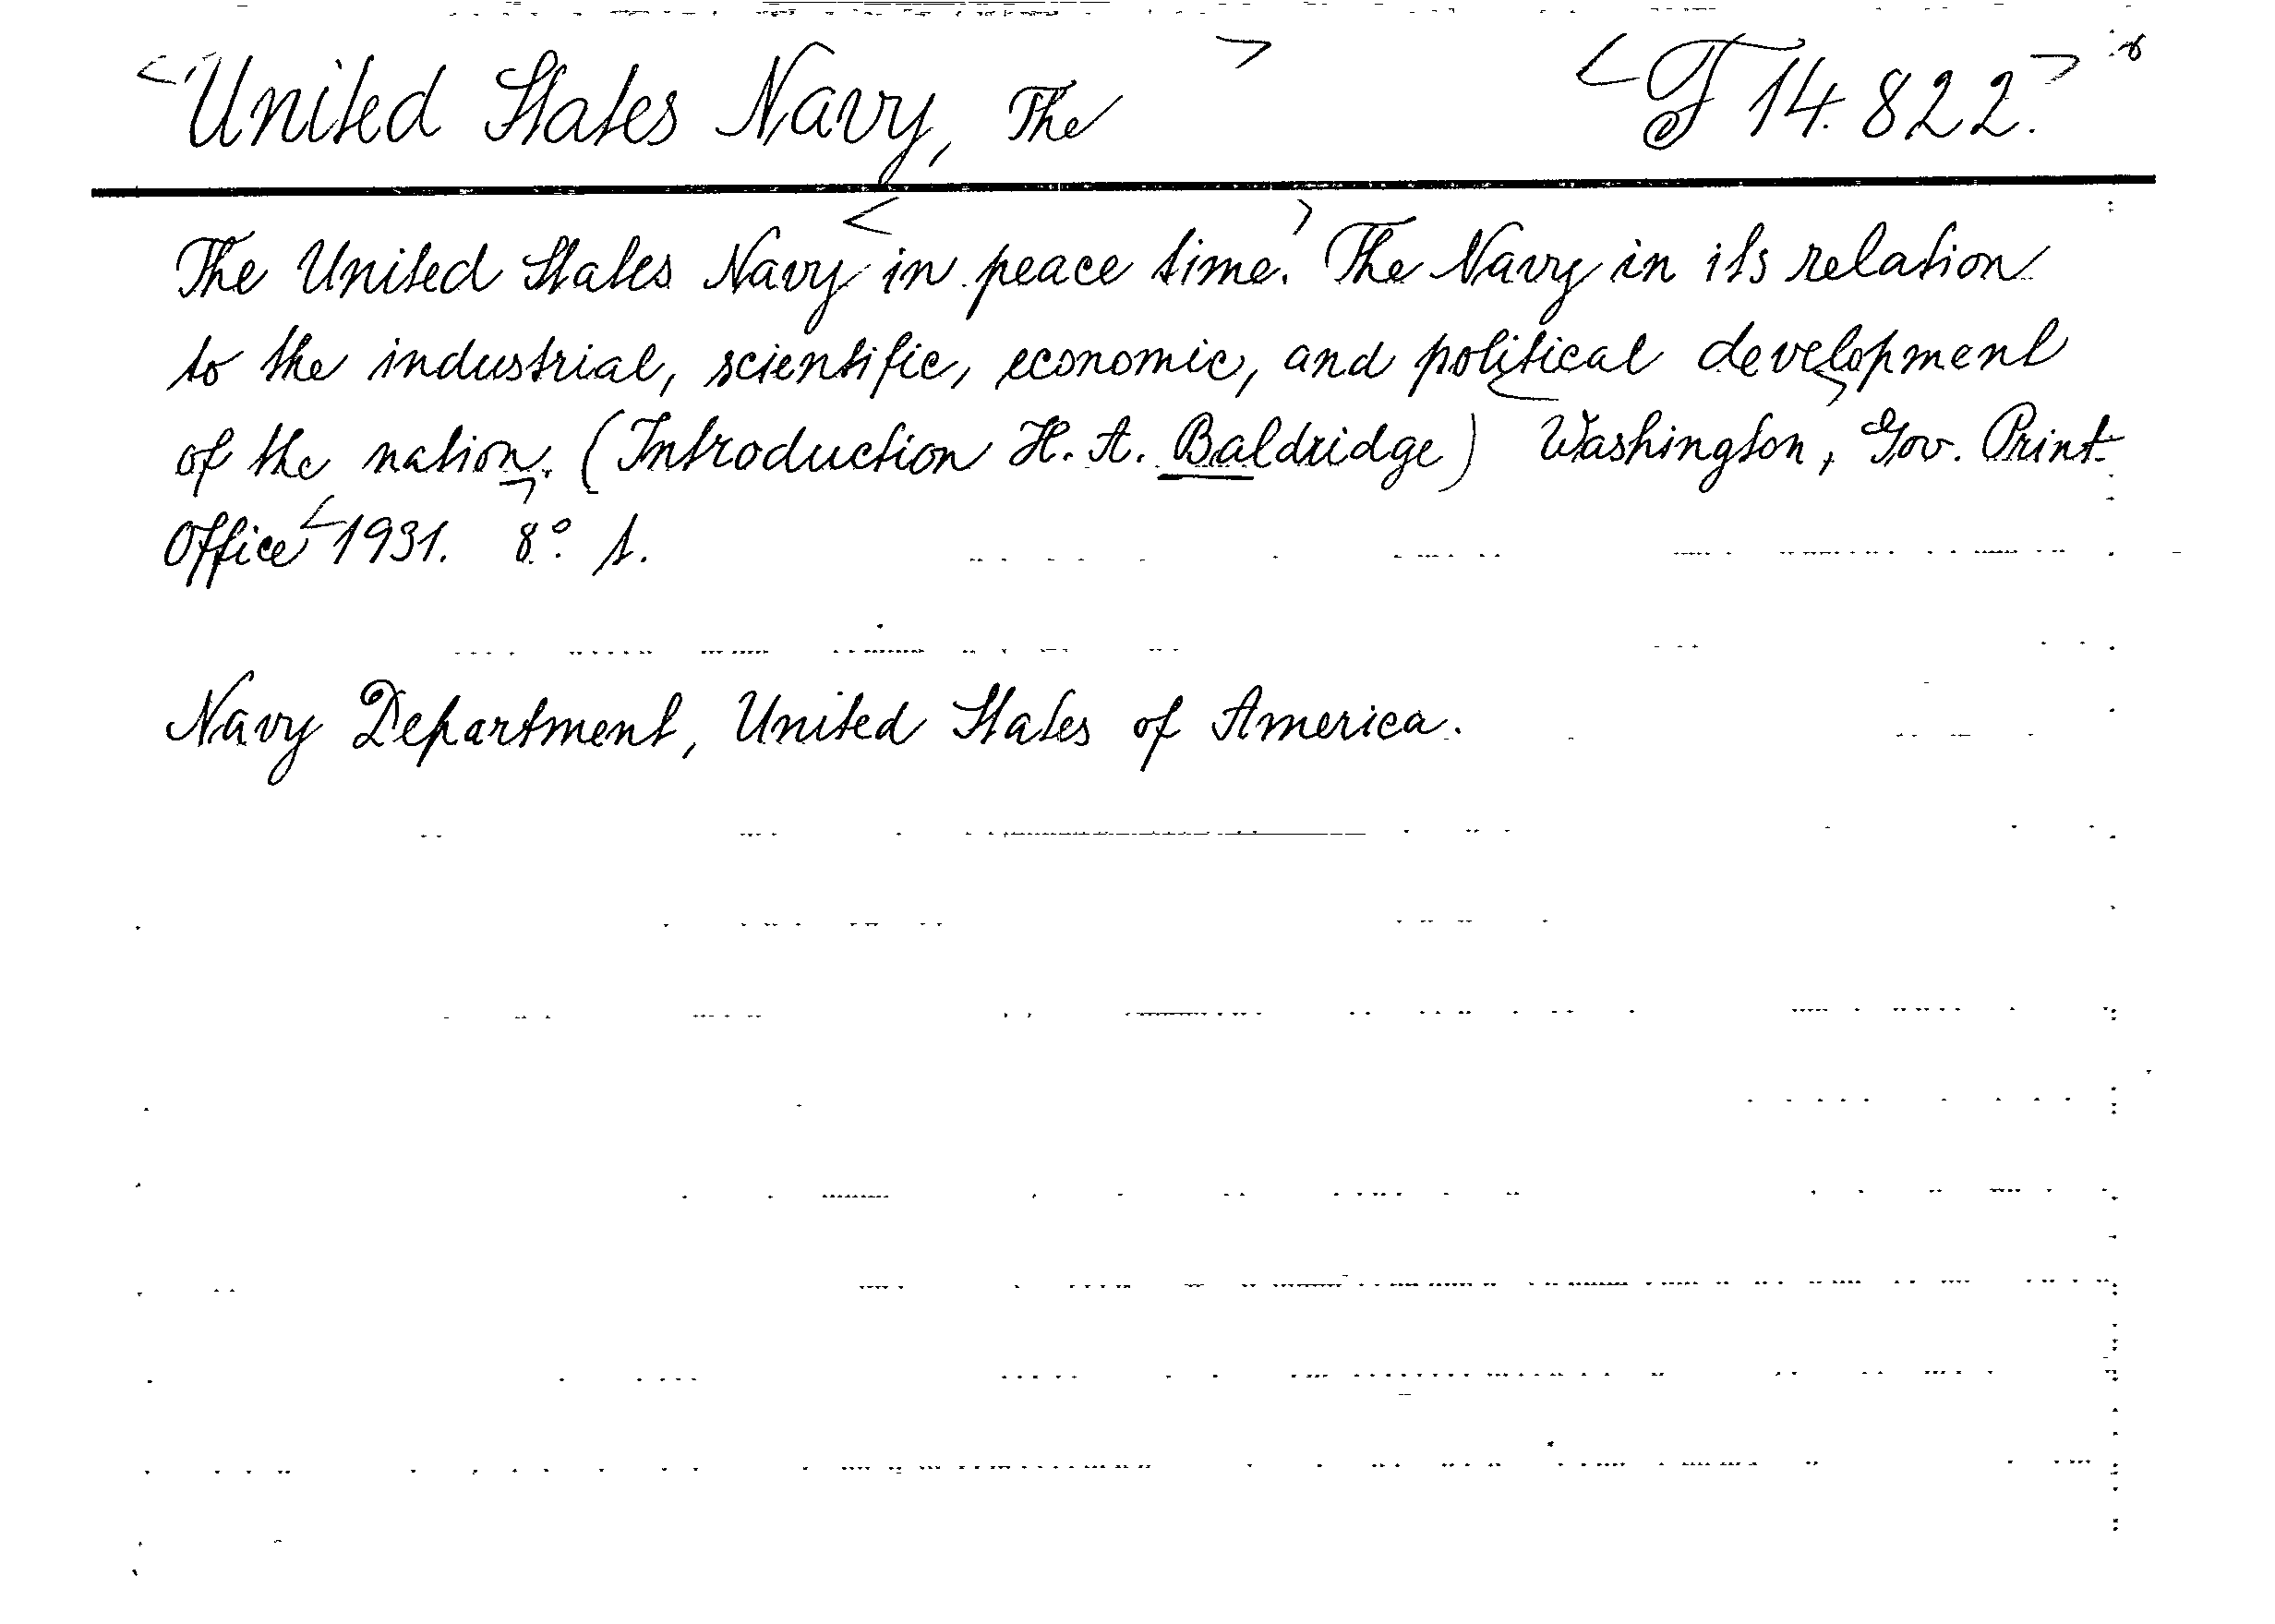 <United States Navy, The> <F 14.822.>
The United States Navy <in peace time.> The Navy in its relation
to the industrial, scientific, economic, and political development
of the nation. (Introduction H. A. Baldridge) <Washington,> Gov. Print
Office <1931.> 8.° s.
Navy Department, United States of America.